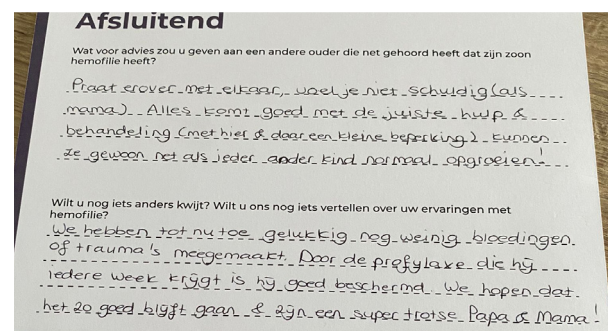 Afsluitend
Wat voor advies zou u geven aan een andere ouder die net gehoord heeft dat zijn zoon
hemofilie heeft?
Praat erover met elkaar, voel je niet schuldig (als
mama). Alles komt goed met de juiste hulp &
behandeling (met hier & daar een kleine beperking) kunnen
ze gewoon net als ieder ander kind normaal opgroeien!
Wilt u nog iets anders kwijt? Wilt u ons nog iets vertellen over uw ervaringen met
hemofilie?
We hebben tot nu toe gelukkig nog weinig bloedingen
of trauma's meegemaakt. Door de profylaxe die hij
iedere week krijgt is hij goed beschermd. We hopen dat
het zo goed blijft gaan & zijn een super trotse Papa & Mama!